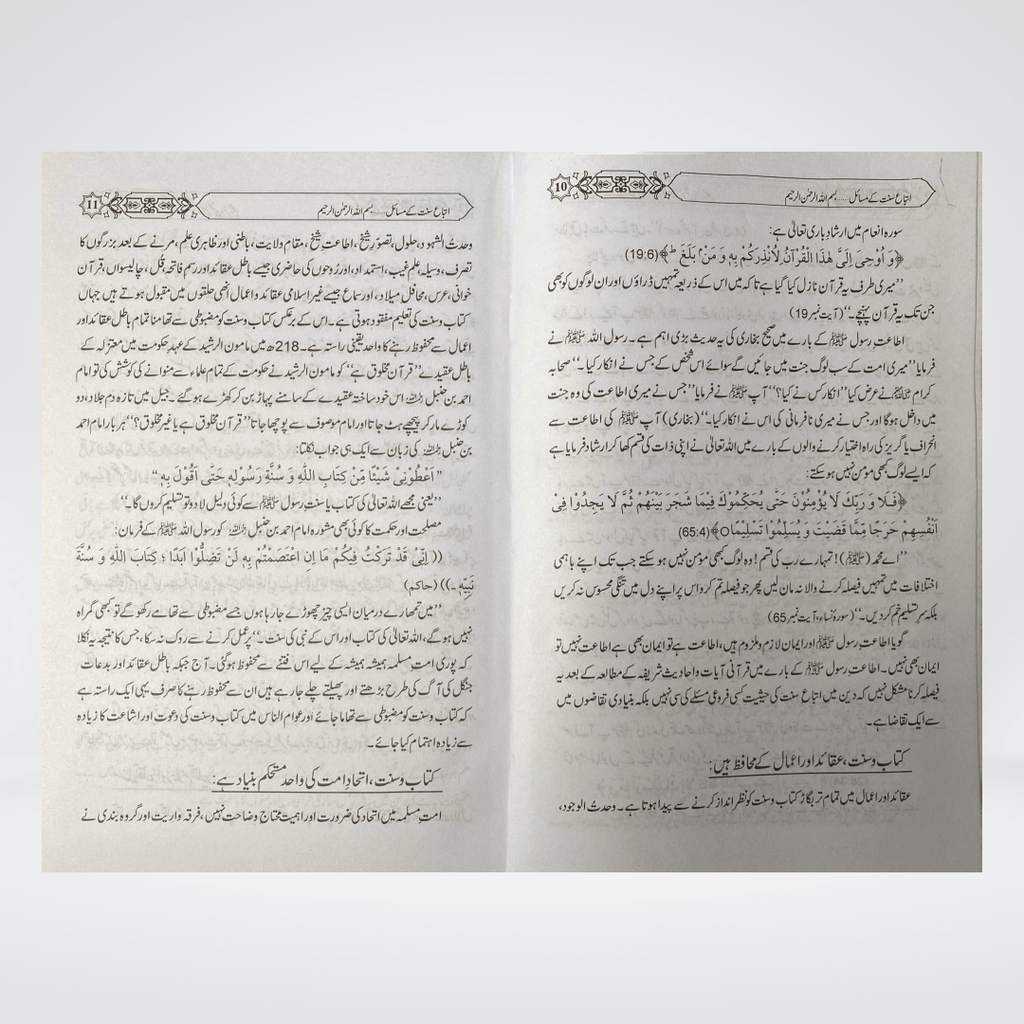 10
اتباع سنت کے مسائل ...... بسم اللہ الرحمٰن الرحیم
سورہ انعام میں ارشاد باری تعالیٰ ہے:
﴿وَ اُوْحِیَ اِلَیَّ هٰذَا الْقُرْآنُ لِاُنْذِرَكُمْ بِهٖ وَ مَنْۢ بَلَغَ ط﴾(19:6)
’’میری طرف یہ قرآن نازل کیا گیا ہے تاکہ میں اس کے ذریعہ تمہیں ڈراؤں اور ان لوگوں کو بھی
جن تک یہ قرآن پہنچے۔‘‘ (آیت نمبر 19)
اطاعتِ رسول ﷺ کے بارے میں صحیح بخاری کی یہ حدیث بڑی اہم ہے۔ رسول اللہ ﷺ نے
فرمایا ’’میری امت کے سب لوگ جنت میں جائیں گے سوائے اس شخص کے جس نے انکار کیا۔‘‘ صحابہ
کرام نے عرض کیا ’’انکار کس نے کیا؟‘‘ آپ ﷺ نے فرمایا ’’جس نے میری اطاعت کی وہ جنت
میں داخل ہوگا اور جس نے میری نافرمانی کی اس نے انکار کیا۔‘‘ (بخاری) آپ ﷺ کی اطاعت سے
انحراف یا گریز کی راہ اختیار کرنے والوں کے بارے میں اللہ تعالیٰ نے اپنی ذات کی قسم کھا کر ارشاد فرمایا ہے
کہ ایسے لوگ کبھی مؤمن نہیں ہوسکتے:
﴿فَلَا وَ رَبِّكَ لَا يُؤْمِنُوْنَ حَتّٰى يُحَكِّمُوْكَ فِيْمَا شَجَرَ بَيْنَهُمْ ثُمَّ لَا يَجِدُوْا فِيْ
اَنْفُسِهِمْ حَرَجًا مِّمَّا قَضَيْتَ وَ يُسَلِّمُوْا تَسْلِيْمًا○﴾(65:4)
’’اے محمد (ﷺ)! تمہارے رب کی قسم! وہ لوگ کبھی مؤمن نہیں ہوسکتے جب تک اپنے باہمی
اختلافات میں تمہیں فیصلہ کرنے والا نہ مان لیں پھر جو فیصلہ تم کرو اس پر اپنے دل میں تنگی محسوس نہ کریں
بلکہ سرِ تسلیم خم کر دیں۔‘‘ (سورہ نساء، آیت نمبر 65)
گویا اطاعتِ رسول ﷺ اور ایمان لازم وملزوم ہیں، اطاعت ہے تو ایمان بھی ہے اطاعت نہیں تو
ایمان بھی نہیں۔ اطاعت رسول ﷺ کے بارے میں قرآنی آیات و احادیث شریفہ کے مطالعہ کے بعد یہ
فیصلہ کرنا مشکل نہیں کہ دین میں اتباع سنت کی حیثیت کسی فروعی مسئلے کی سی نہیں بلکہ بنیادی تقاضوں میں
سے ایک تقاضا ہے۔
کتاب وسنت، عقائد اور اعمال کے محافظ ہیں:
عقائد اور اعمال میں تمام تر بگاڑ کتاب وسنت کو نظر انداز کرنے سے پیدا ہوتا ہے۔ وحدت الوجود،
11
اتباع سنت کے مسائل ...... بسم اللہ الرحمٰن الرحیم
وحدت الشہود، حلول، تصوّرِ شیخ، اطاعت شیخ، مقامِ ولایت، باطنی اور ظاہری علم، مرنے کے بعد بزرگوں کا
تصرف، وسیلہ، علم غیب، استمداد، اور رُوحوں کی حاضری جیسے باطل عقائد اور رسم فاتحہ، قُل، چالیسواں، قرآن
خوانی، عرس، محافلِ میلاد، اور سماع جیسے غیر اسلامی عقائد و اعمال انھی حلقوں میں مقبول ہوتے ہیں جہاں
کتاب وسنت کی تعلیم مفقود ہوتی ہے۔ اس کے برعکس کتاب وسنت کو مضبوطی سے تھامنا تمام باطل عقائد اور
اعمال سے محفوظ رہنے کا واحد یقینی راستہ ہے۔ 218ھ میں مامون الرشید کے عہدِ حکومت میں معتزلہ کے
باطل عقیدے ’’قرآن مخلوق ہے‘‘ کو مامون الرشید نے حکومت کے تمام علماء سے منوانے کی کوشش کی تو امام
احمد بن حنبل اس خود ساختہ عقیدے کے سامنے پہاڑ بن کر کھڑے ہوگئے۔ جیل میں تازہ دم جلاد، دو
کوڑے مار کر پیچھے ہٹ جاتا اور امام موصوف سے پوچھا جاتا ’’قرآن مخلوق ہے یا غیر مخلوق؟‘‘ ہر بار امام احمد
بن حنبل کی زبان سے ایک ہی جواب نکلتا:
’’اَعْطُوْنِیْ شَيْئًا مِّنْ كِتَابِ اللّٰهِ وَ سُنَّةِ رَسُوْلِهٖ حَتّٰى اَقُوْلَ بِهٖ‘‘
’’یعنی مجھے اللہ تعالیٰ کی کتاب یا سنتِ رسول ﷺ سے کوئی دلیل لا دو تو تسلیم کروں گا۔‘‘
مصلحت اور حکمت کا کوئی بھی مشورہ امام احمد بن حنبل کو رسول اللہ ﷺ کے فرمان:
((اِنِّیْ قَدْ تَرَكْتُ فِيْكُمْ مَا اِنِ اعْتَصَمْتُمْ بِهٖ لَنْ تَضِلُّوْا اَبَدًا ؛ كِتَابَ اللّٰهِ وَ سُنَّةَ
نَبِيِّهٖ ۔)) (حاکم)
’’میں تمہارے درمیان ایسی چیز چھوڑے جا رہا ہوں جسے مضبوطی سے تھامے رکھو گے تو کبھی گمراہ
نہیں ہوگے، اللہ تعالیٰ کی کتاب اور اس کے نبی کی سنت۔‘‘ پر عمل کرنے سے روک نہ سکا، جس کا نتیجہ یہ نکلا
کہ پوری امتِ مسلمہ ہمیشہ ہمیشہ کے لیے اس فتنے سے محفوظ ہوگئی۔ آج جبکہ باطل عقائد اور بدعات
جنگل کی آگ کی طرح بڑھتے اور پھیلتے چلے جا رہے ہیں ان سے محفوظ رہنے کا صرف یہی ایک راستہ ہے
کہ کتاب وسنت کو مضبوطی سے تھاما جائے اور عوام الناس میں کتاب وسنت کی دعوت اور اشاعت کا زیادہ
سے زیادہ اہتمام کیا جائے۔
کتاب وسنت، اتحادِ امت کی واحد مستحکم بنیاد ہے:
امتِ مسلمہ میں اتحاد کی ضرورت اور اہمیت محتاجِ وضاحت نہیں، فرقہ واریت اور گروہ بندی نے